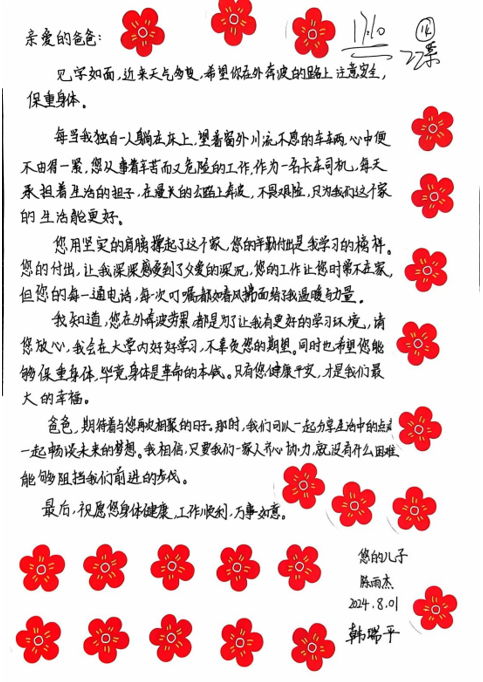 亲爱的爸爸：
17:10
见字如面，近来天气多变，希望你在外奔波的路上注意安全，
保重身体。
每当我独自一人躺在床上，望着窗外川流不息的车辆，心中便
不由有一紧，您从事着辛苦而又危险的工作，作为一名卡车司机，每天
承担着生活的担子，在漫长的公路上奔波，不畏艰险，只为我们这个家
的生活能更好。
您用坚实的肩膀撑起了这个家，您的辛勤付出是我学习的榜样。
您的付出，让我深深感受到了父爱的深沉，您的工作让您时常不在家，
但您的每一通电话，每一次叮嘱都如春风拂面给了我温暖与力量。
我知道，您在外奔波劳累，都是为了让我有更好的学习环境，请
您放心，我会在大学内好好学习，不辜负您的期望。同时也希望您能
够保重身体，毕竟身体是革命的本钱。只有您健康平安，才是我们最
大的幸福。
爸爸，期待着与您再次相聚的日子。那时，我们可以一起分享生活中的点
一起畅谈未来的梦想。我相信，只要我们一家人齐心协力，就没有什么困难
能够阻挡我们前进的步伐。
最后，祝愿您身体健康，工作顺利，万事如意。
您的儿子
陈雨杰
2024.8.01
韩瑞平